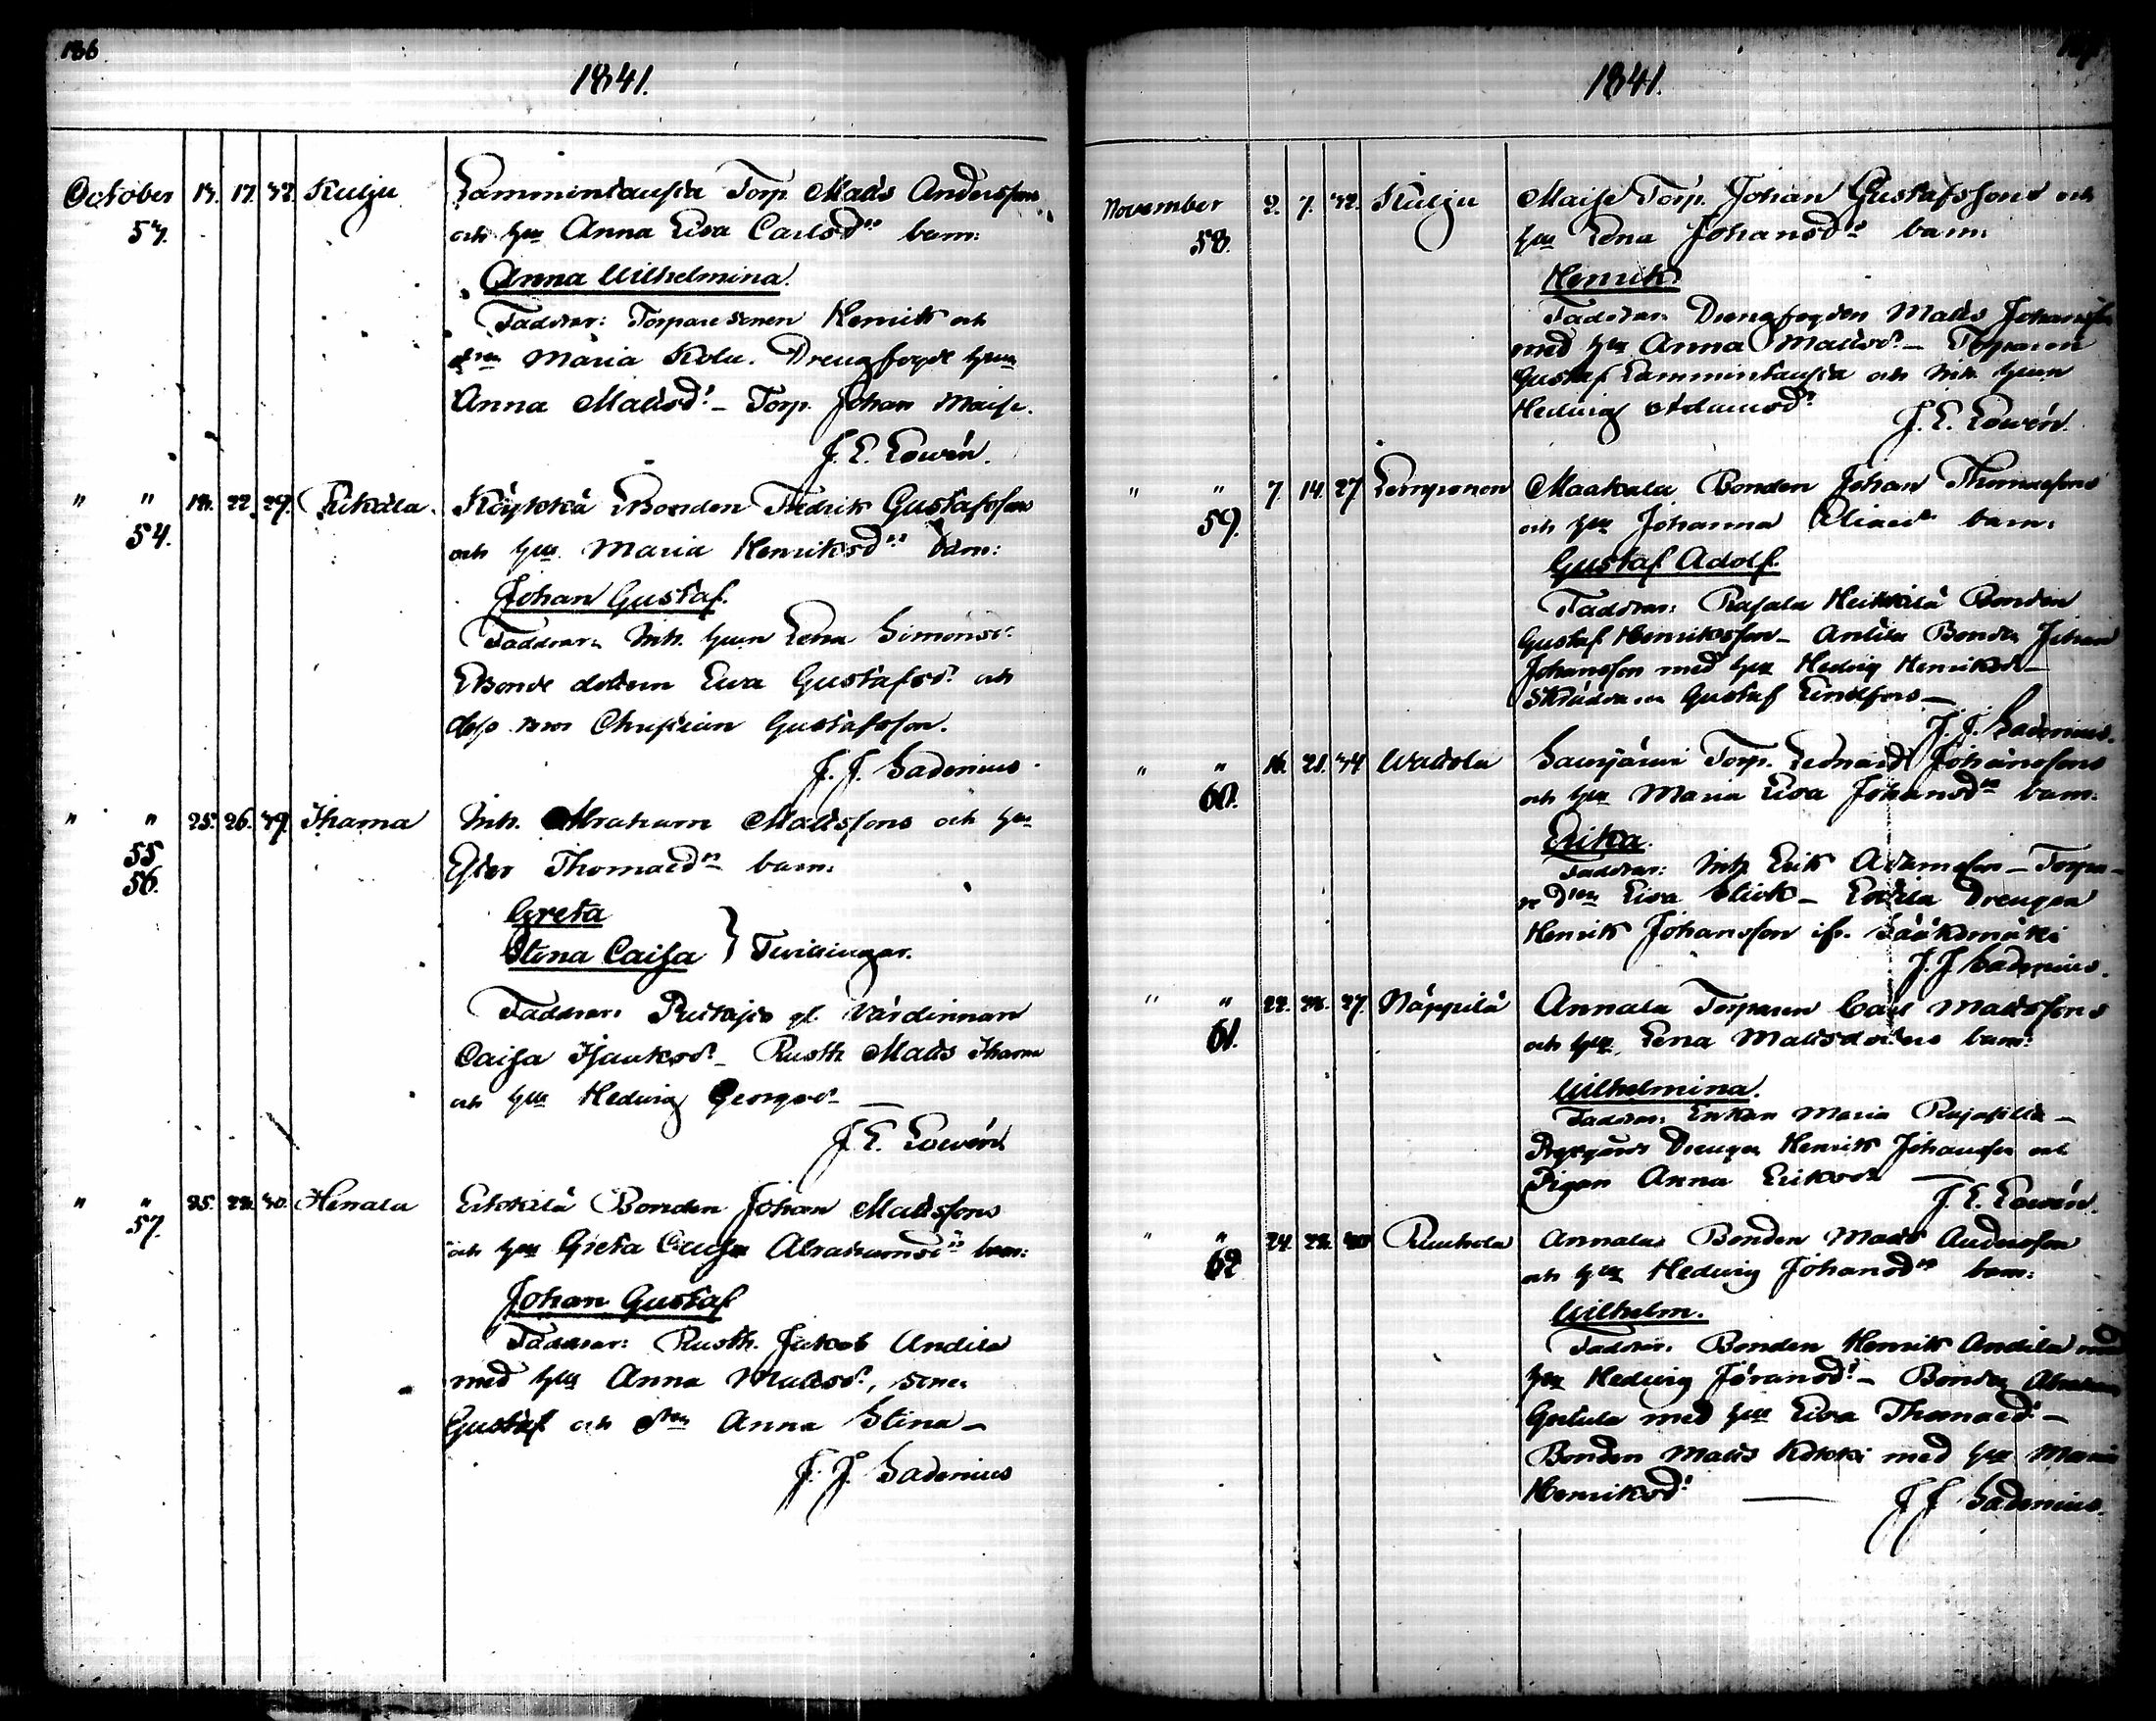 186.
1841.
October 13. 17. 32. Kulju Lammintausta Torp. Matts Anderssons
53. och hu Anna Lisa Carlsdrs barn:
Anna Wilhelmina.
Faddrar: Torpare sonen Henrik och
dren Maria Kolu. Drengfogde hun
Anna Mattsdr – Torp. Johan Maise.
J. E. Lowén.
" " 18. 22. 29. Kukkä Bonden Fredrik Gustafsson
54. och hu Maria Henriksdrs barn:
Johan Gustaf.
Faddrar: Inh. hun Lena Simonsdr
Bonde dottern Eva Gustafsdr och
dess bror Christian Gustafsson.
J. J. Sadenius.
" " 25. 26. 39. Ihama Inh. Abraham Mattssons och hu
55 Ester Thomaedrs barn:
56.
Greta
Stina Caisa } Twillingar.
Faddrar: gl. Värdinnan
Caisa Isaksdr – Rusth. Matts Ihama
och hu Hedvig Georgsdr —
J. E. Lowén.
" " 25. 28. 30. Henala Erkkilä Bonden Johan Mattssons
57. och hu Greta Caisa Abrahamsdrs barn:
Johan Gustaf
Faddrar: Rusth. Jakob Andila
med hu Anna Mattsdr, sonen
Gustaf och dren Anna Stina –
J. J. Sadenius
1841.
November 2. 7. 32. Kulju Maise Torp. Johan Gustafssons och
58. hu Lena Johansdrs barn:
Henrik
Faddrar: Drengfogden Matts Johansson
med hu Anna Mattsdr – Torparen
Gustaf Lammintausta och Inh. hun
Hedvig Adamsdr
J. E. Lowén.
" " 7. 14. 27 Lemponen Maakala Bonden Johan Thomassons
59. och hu Johanna Eliaedr barn:
Gustaf Adolf.
Faddrar: Rasala Heikkilä Bonden
Gustaf Henriksson – Antila Bonden Johan
Johansson med hu Hedvig Henriksdr –
Skräddaren Gustaf Lindfors —
J. J. Sadenius.
" " 16. 21. 34 Wattola Saurjärwi Torp. Leonard Johanssons
60. och hu Maria Lisa Johansdrs barn:
Erika.
Faddrar: Inh. Erik Adamsson – Torpa-
re dren Lisa – Drengen
Henrik Johansson ifr. Sääksmäki
J. J. Sadenius.
" " 22. 27. Näppilä Annala Torparen Carl Mattssons
61. och hu Lena Mattsdotters barn:
Wilhelmina.
Faddrar: Enkan Maria –
Drengen Henrik Johansson och
Pigan Anna Eriksdr —
J. E. Lowén.
" " 24. 28. 40 Ruuhola Annala Bonden Matts Andersson
62 och hu Hedvig Johansdrs barn:
Wilhelm.
Faddrar: Bonden Henrik Andila med
hu Hedvig Göransdr – Bonden Abraham
med hu Lisa Thomaedr –
Bonden Matts med hu Maria
Henriksdr — J. J. Sadenius.